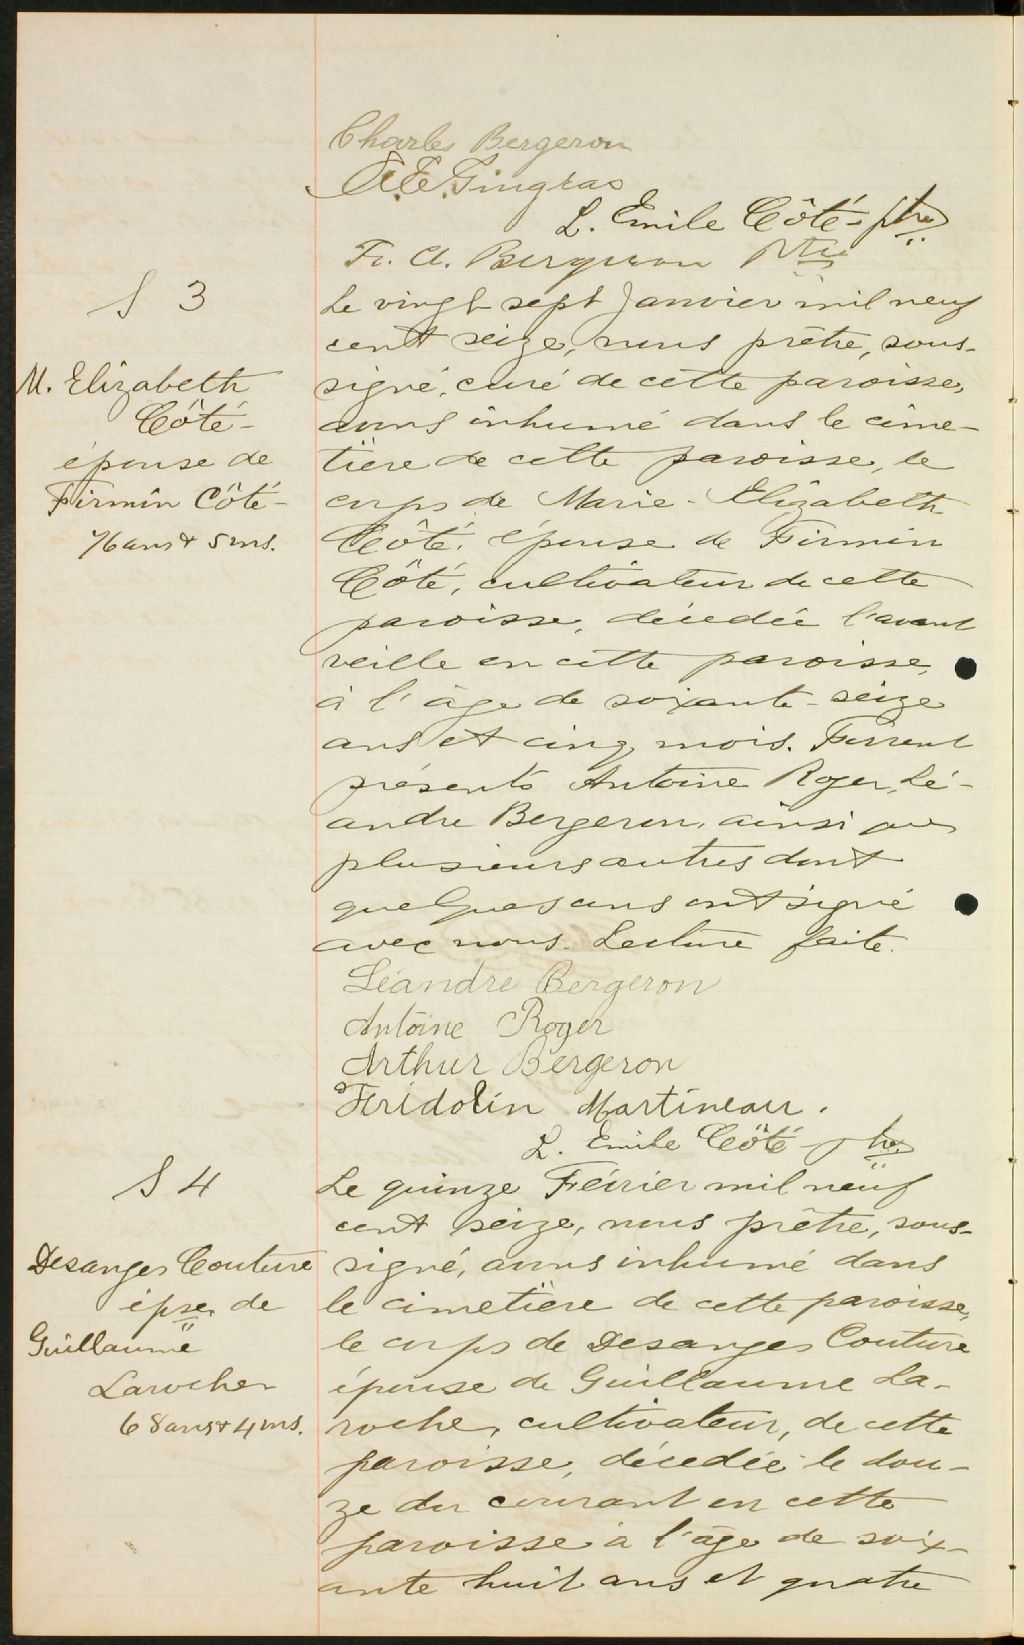 Charles Bergeron
A. E. Gingras
L. Emile Côté ptre
Fr. A. Bergeron Ptre
S 3
M. Elizabeth
Côté
épouse de
Firmin Côté
76 ans & 5 ms.
Le vingt sept Janvier mil neuf
cent seize, nous prêtre, sous-
signé, curé de cette paroisse,
avons inhumé dans le cime-
tière de cette paroisse, le
corps de Marie-Elizabeth
Côté, épouse de Firmin
Côté, cultivateur de cette
paroisse, décedée l'avant
veille en cette paroisse,
à l'âge de soixante-seize
ans et cinq mois. Furent
présents Antoine Roger, Lé-
andre Bergeron, ainsi que
plusieurs autres dont
quelques uns ont signé
avec nous. Lecture faite.
Léandre Bergeron
Antoine Roger
Arthur Bergeron
Fridolin Martineau.
L. Emile Côté ptre
S 4
Desanges Couture
épse de
Guillaume
Laroche
68 ans & 4 ms.
Le quinze Février mil neuf
cent seize, nous prêtre, sous-
signé, avons inhumé dans
le cimetière de cette paroisse,
le corps de Desanges Couture
épouse de Guillaume La-
roche, cultivateur, de cette
paroisse, décedée le dou-
ze du courant en cette
paroisse à l'âge de soix-
ante huit ans et quatre